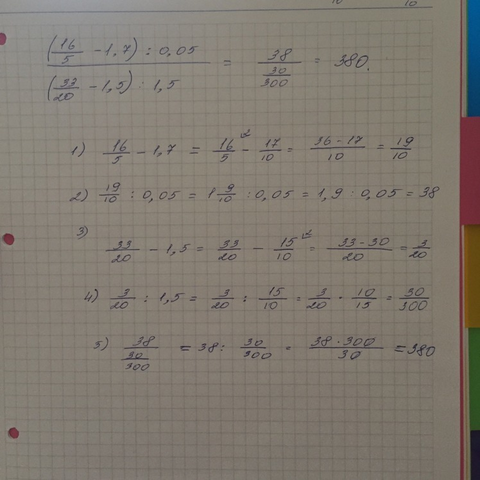 10 10
((16/5 - 1,7) : 0,05) / ((33/20 - 1,5) : 1,5) = 38 / (30/300) = 380.
1) 16/5 - 1,7 = 16/5 \2 - 17/10 = (36-17)/10 = 19/10
2) 19/10 : 0,05 = 1 9/10 : 0,05 = 1,9 : 0,05 = 38
3) 33/20 - 1,5 = 33/20 - 15/10 \2 = (33-30)/20 = 3/20
4) 3/20 : 1,5 = 3/20 : 15/10 = 3/20 · 10/15 = 30/300
5) 38 / (30/300) = 38 : 30/300 = (38 · 300)/30 = 380